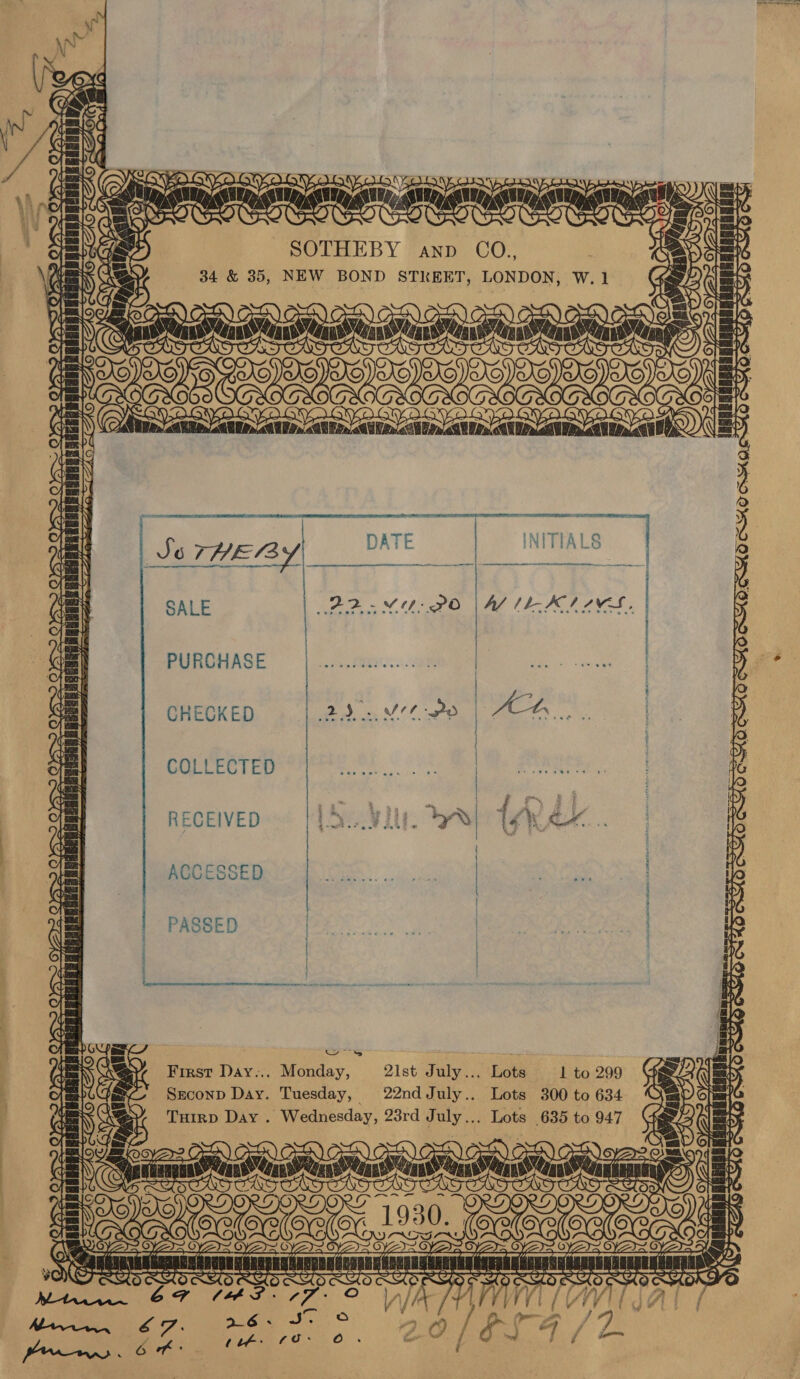 SOTHEBY AND CO.,
34 & 35, NEW BOND STREET, LONDON, W. 1
SOTHEBY DATE INITIALS
SALE 22 . VII . 30
PURCHASE
CHECKED 23 . VII . 30
COLLECTED
RECEIVED
ACCESSED
PASSED
FIRST DAY... Monday, 21st July... Lots 1 to 299
SECOND DAY. Tuesday, 22nd July.. Lots 300 to 634
THIRD DAY . Wednesday, 23rd July... Lots 635 to 947
1930.